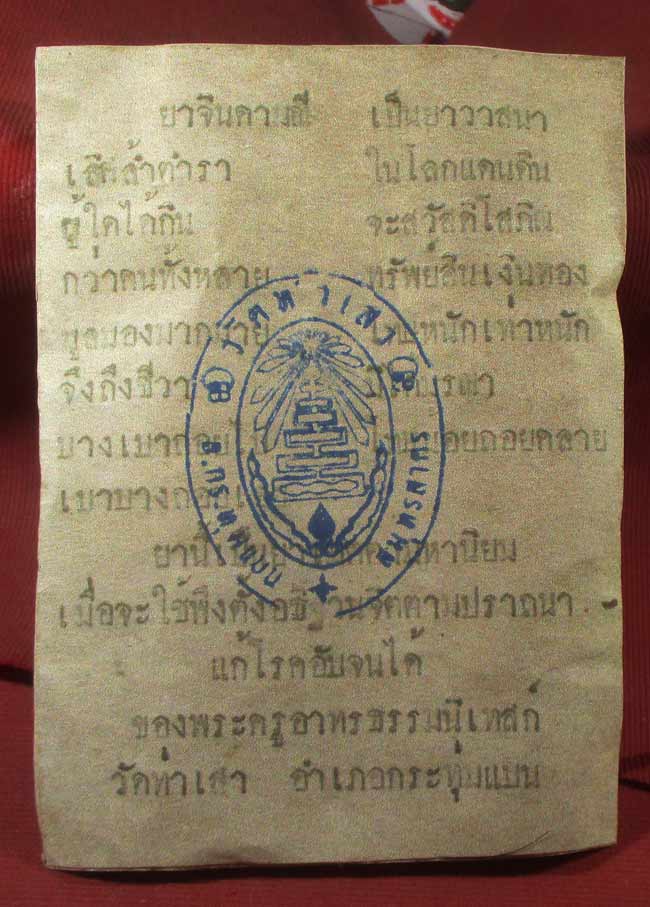 ยาจินดามณี เป็นยาวาสนา
เลิศล้ำตำรา ในโลกแดนดิน
ผู้ใดได้กิน จะสวัสดิโสภิณ
กว่าคนทั้งหลาย ทรัพย์สินเงินทอง
มากมาย หนักเท่าหนัก
จึงถึงชีวา
บางเบาถอย ถอยคลาย
เบาบาง
ยานี้เป็นยา มหานิยม
เมื่อจะใช้พึงตั้งอธิฐานจิตตามปราถนา
แก้โรคอับจนได้
ของพระครูอาทรธรรมนิเทสก์
วัดท่าเสา อำเภอกระทุ่มแบน
วัดท่าเสา
อ.กระทุ่มแบน
สมุทรสาคร